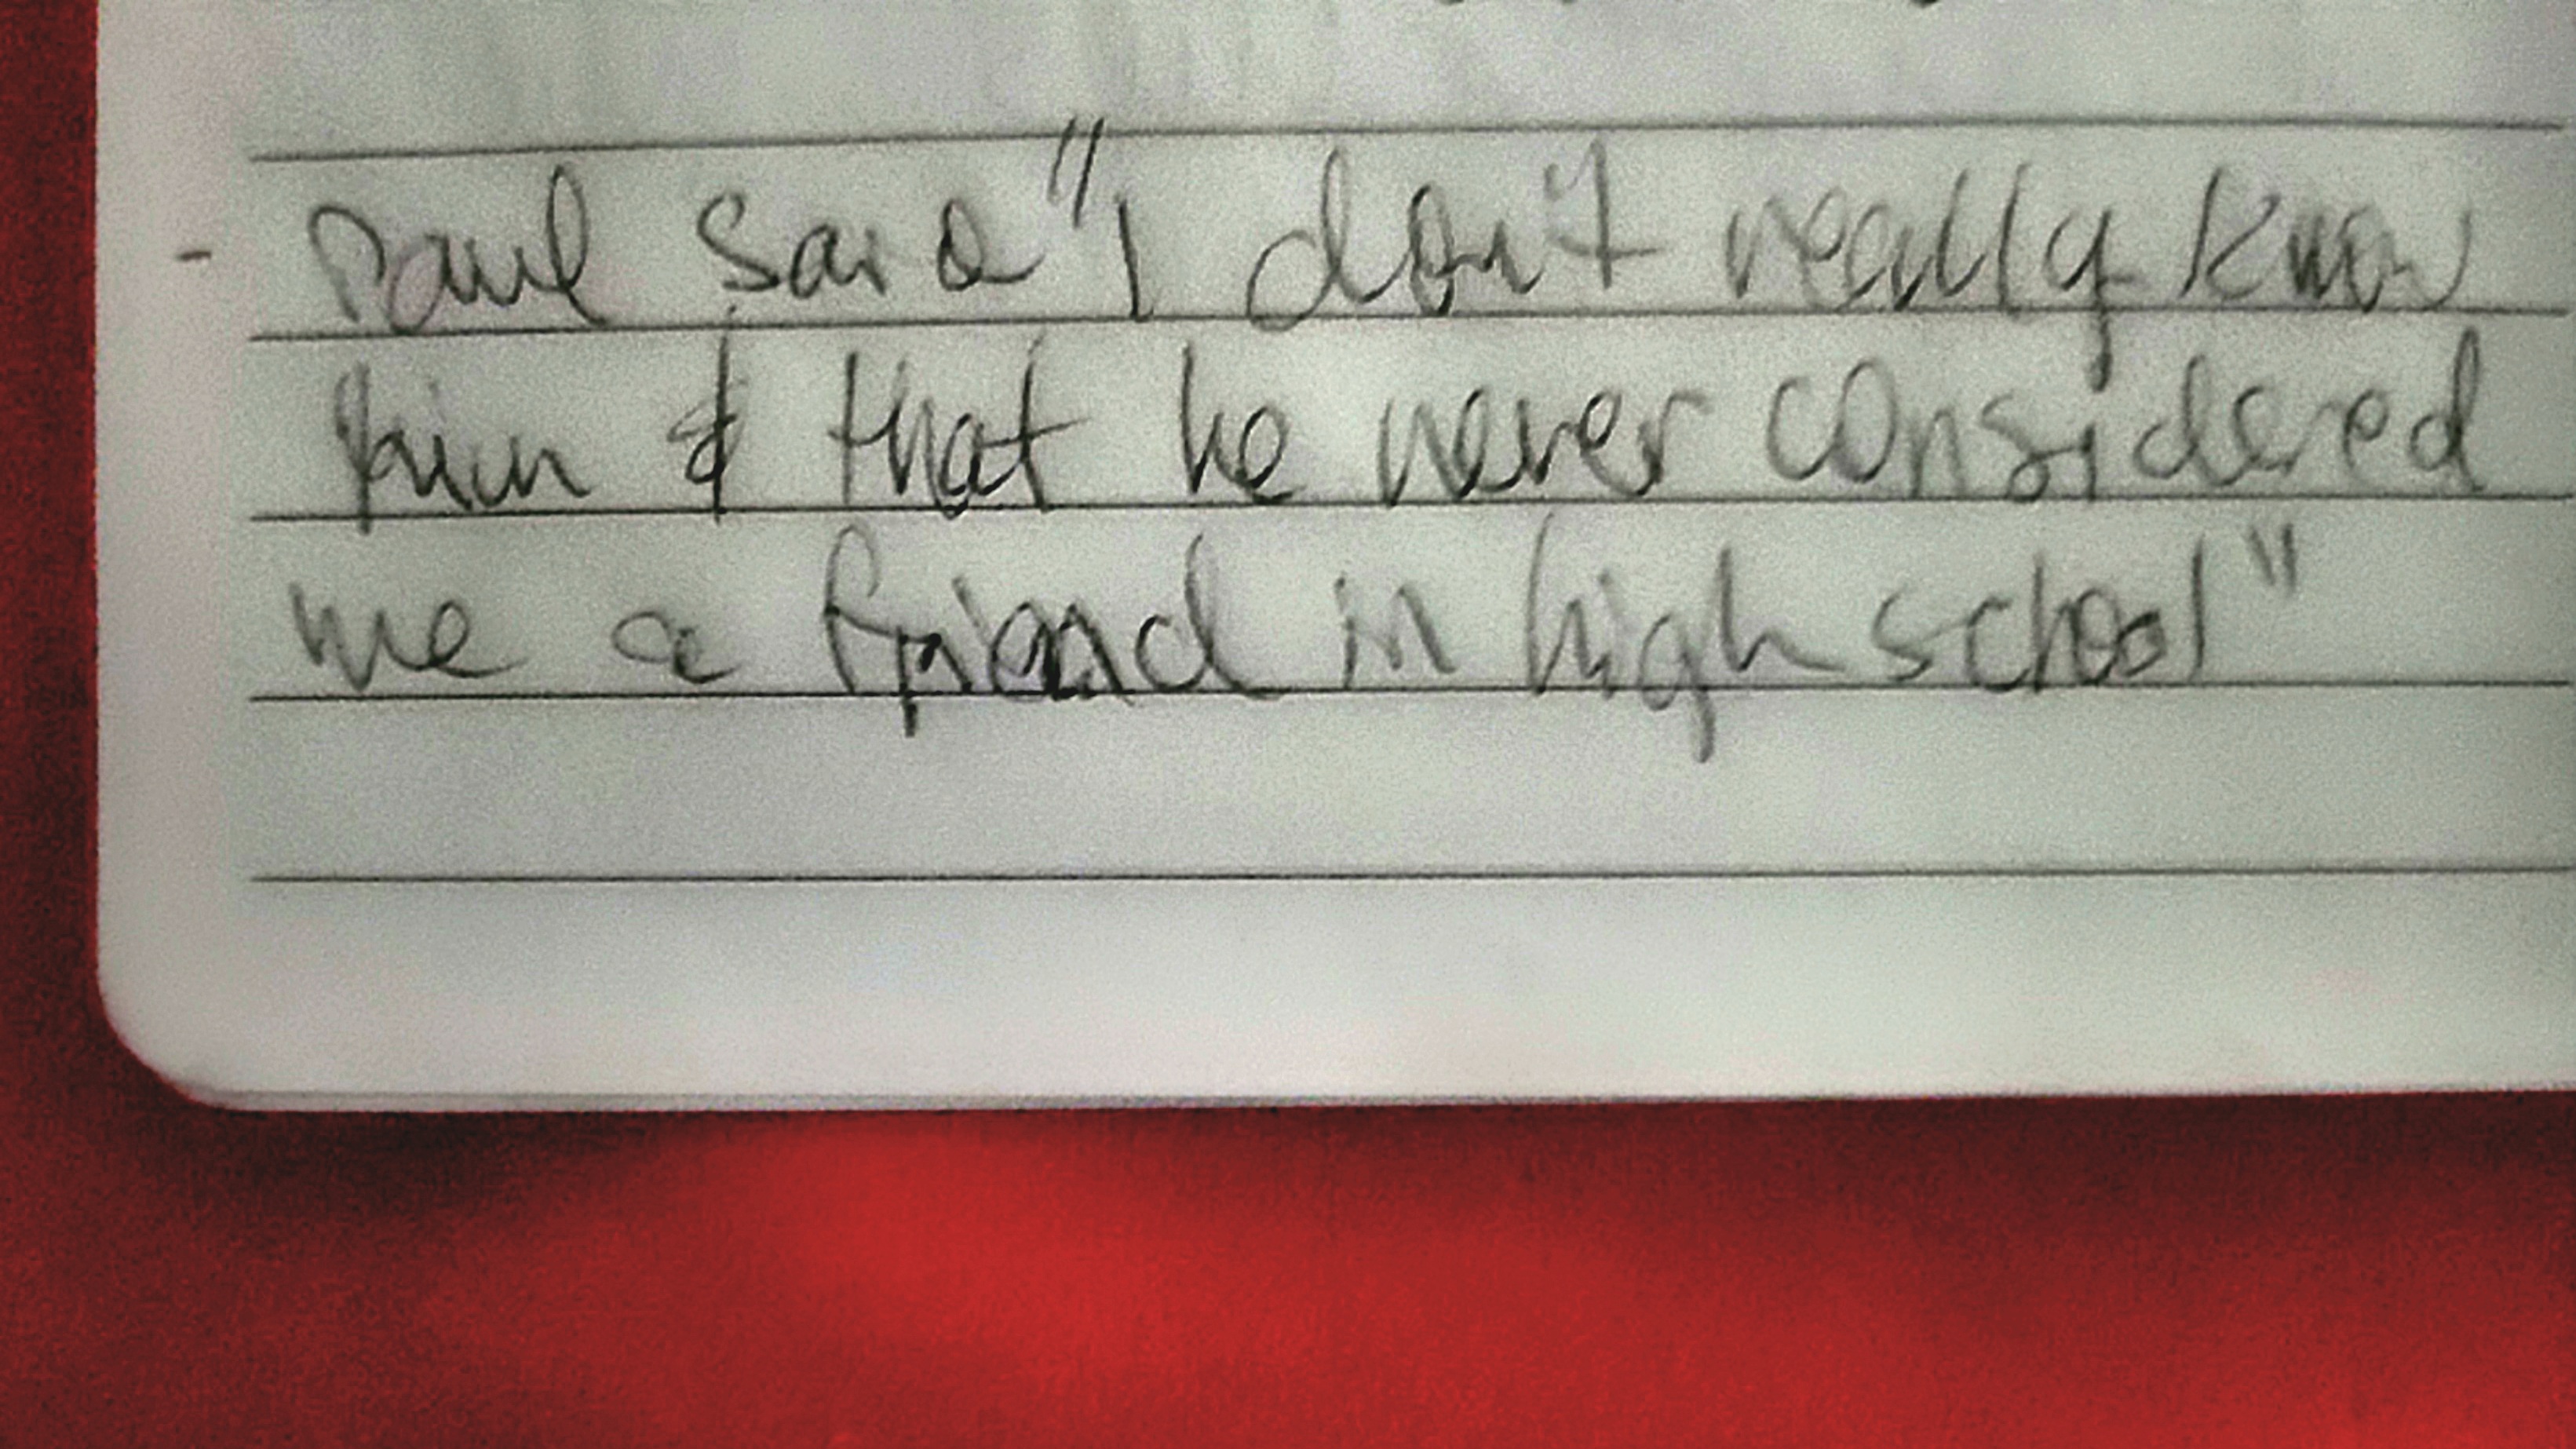 - Paul said "I don't really know
him & that he never considered
me a friend in high school"